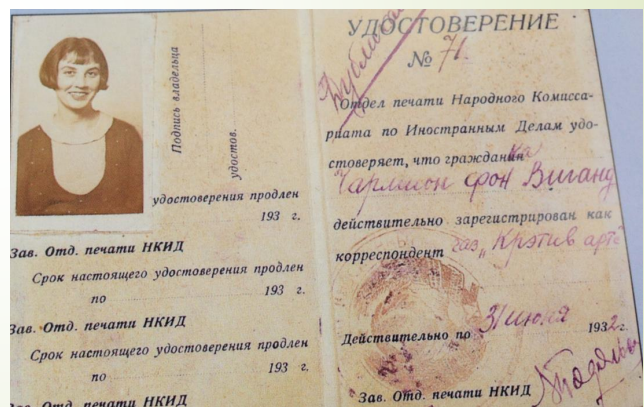 Подпись владельца
удостов.
удостоверения продлен
193 г.
Зав. Отд. печати НКИД
Срок настоящего удостоверения продлен
по 193 г.
Зав. Отд. печати НКИД
Срок настоящего удостоверения продлен
по 193 г.
Зав. Отд. печати НКИД
Дубликат
УДОСТОВЕРЕНИЕ
№ 71.
Отдел печати Народного Комисса-
риата по Иностранным Делам удо-
стоверяет, что гражданка
Чармион фон Виганд
действительно зарегистрирован как
корреспондент газ. „Крэтив арт"
Действительно по 31 июня 1932 г.
Зав. Отд. печати НКИД